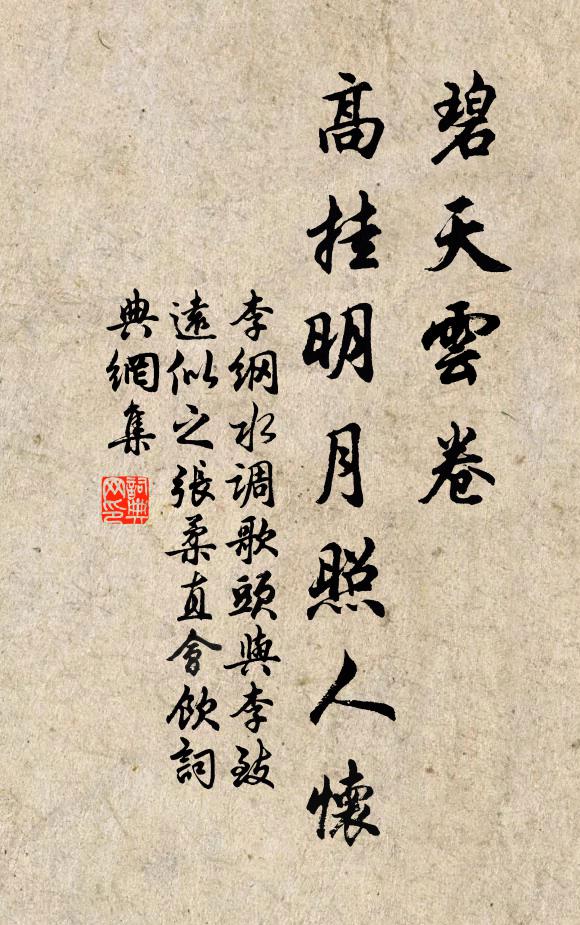 碧天雲卷
高挂明月照人懷
李綱水调歌頭與李致
遠似之張柔直會飲詞
典網集
詞典
网印